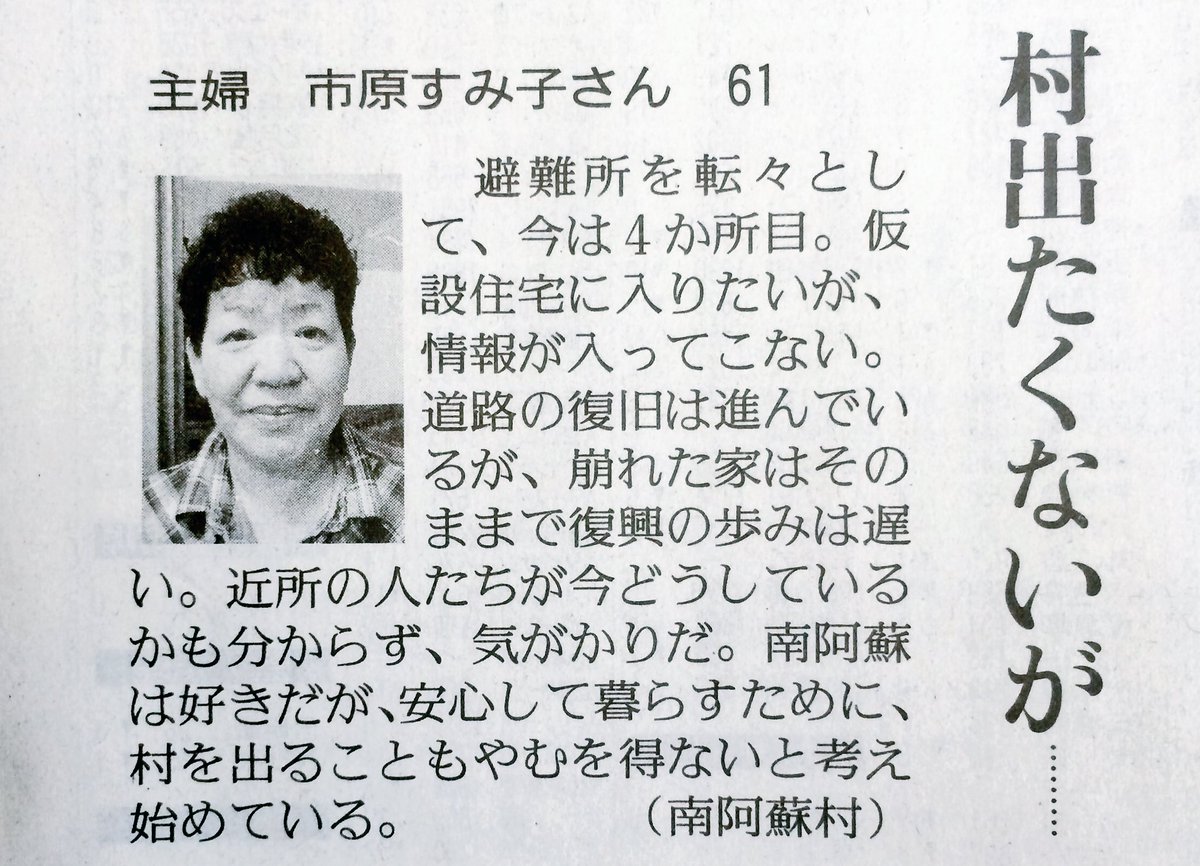 村出たくないが………
主婦　市原すみ子さん　61
避難所を転々とし
て、今は4か所目。仮
設住宅に入りたいが、
情報が入ってこない。
道路の復旧は進んでい
るが、崩れた家はその
ままで復興の歩みは遅
い。近所の人たちが今どうしている
かも分からず、気がかりだ。南阿蘇
は好きだが、安心して暮らすために、
村を出ることもやむを得ないと考え
始めている。　　　　　（南阿蘇村）